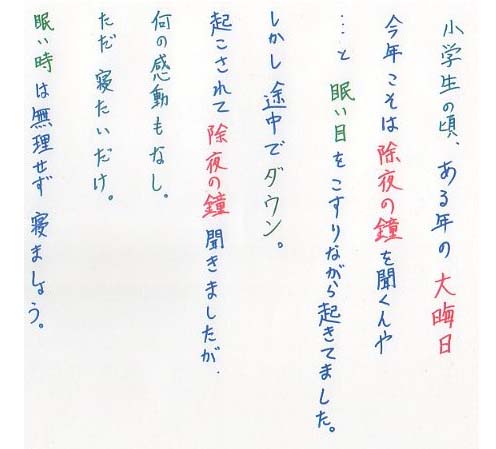 小学生の頃、ある年の大晦日
今年こそは除夜の鐘を聞くんや
…と眠い目をこすりながら起きてました。
しかし途中でダウン。
起こされて除夜の鐘聞きましたが、
何の感動もなし。
ただ寝たいだけ。
眠い時は無理せず寝ましょう。